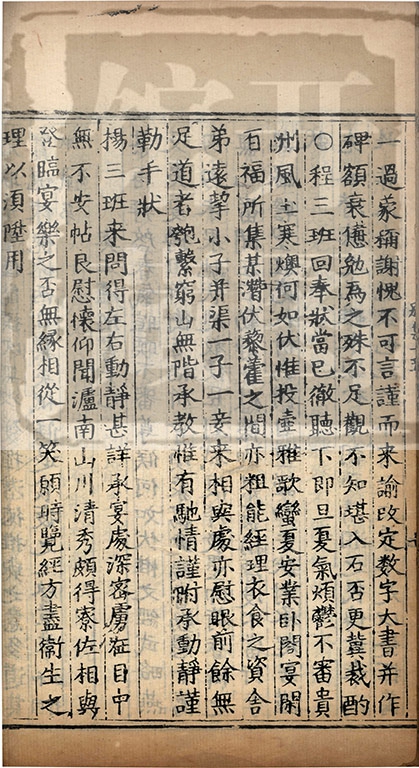 一過蒙稱謝愧不可言謹而来諭改定数字大書并作
碑額衰憊勉為之殊不足觀不知堪入石否更冀裁酌
○程三班回奉狀當已徹聽下即旦夏氣煩鬱不審貴
州風土寒燠何如伏惟投壺雅歌蠻夏安業卧閤宴閑
百福所集某潛伏藜藿之間亦粗能經理衣食之資舍
弟遠挈小子并渠一子一妾来相與處亦慰眼前餘無
足道者匏繫窮山無階承教惟有馳情謹附承動静謹
勒手狀
揚三班来問得左右動静甚詳承宴處深密虜在目中
無不安帖良慰懷仰聞瀘南山川清秀頗得寮佐相與
登臨宴樂之否無緣相從一笑願時覽經方盡衛生之
理以須陞用